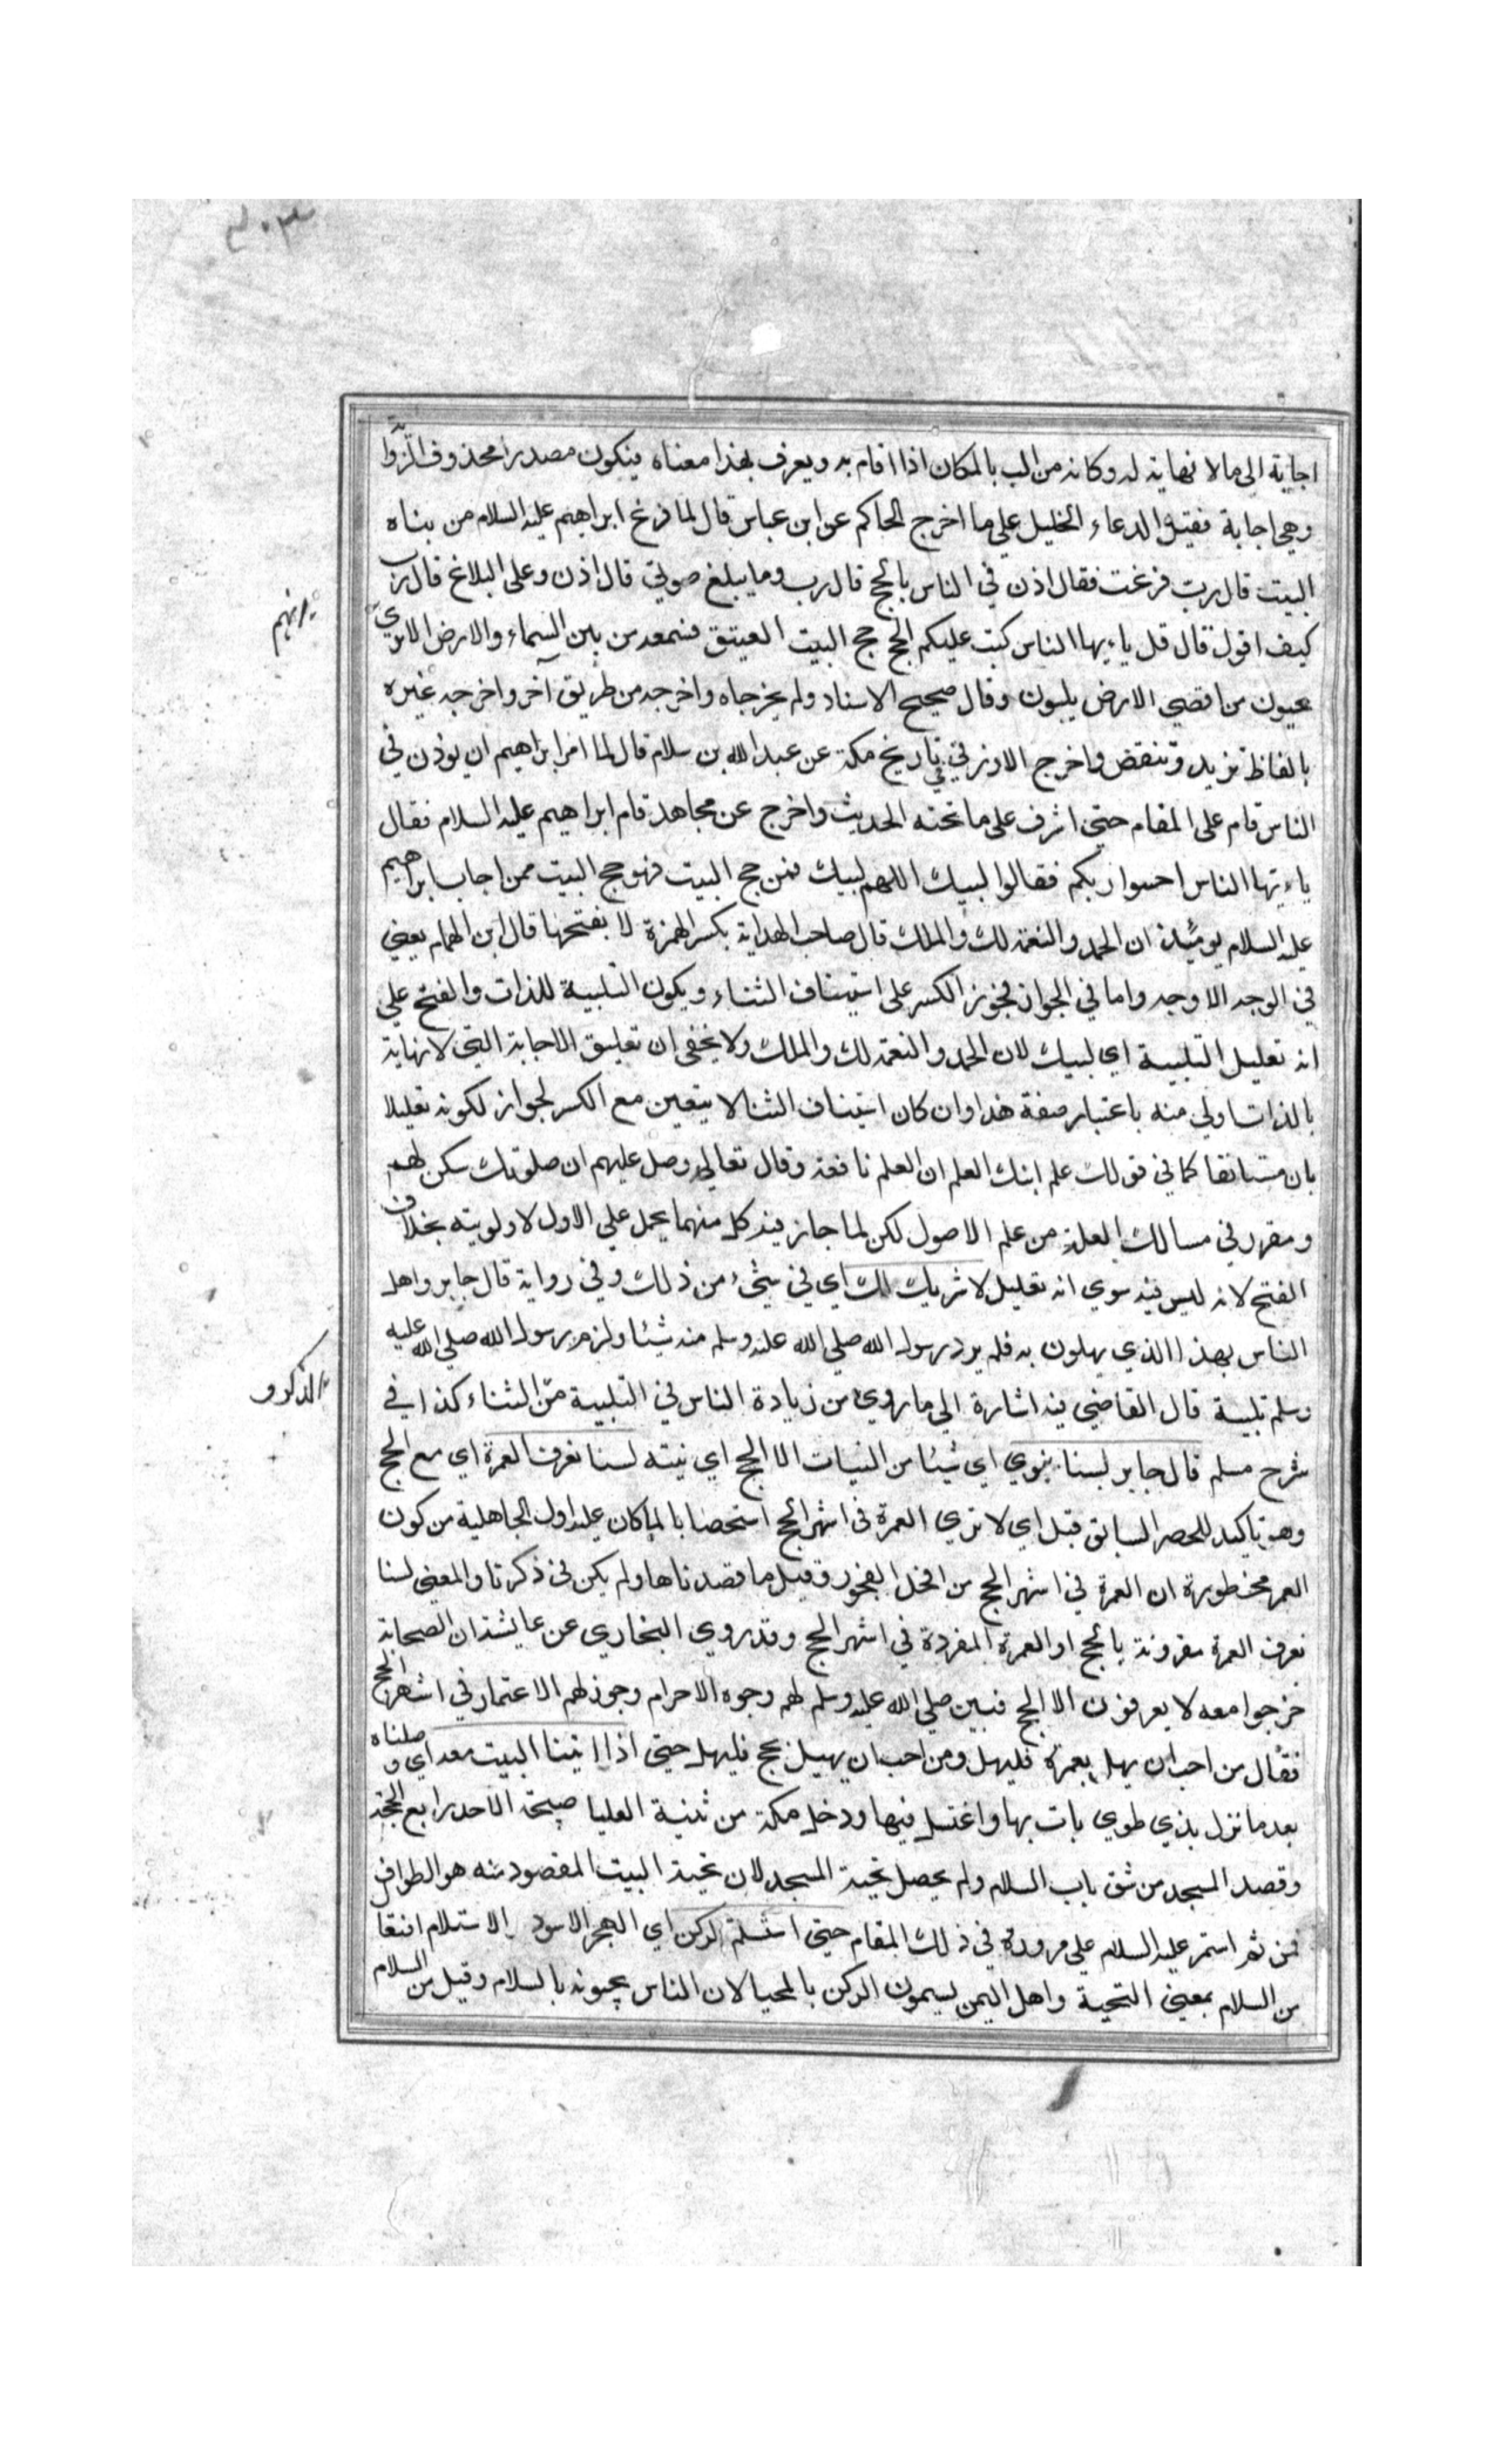 اجابة الى ما لا نهاية له وكانه من الب بالمكان اذا اقام به ويعرف بهذا معناه فيكون مصدرا محذوف الزوا
وهي اجابة فقيل الدعاء الخليل علي ما اخرج الحاكم عن ابن عباس قال لما فرغ ابراهيم عليه السلام من بناه
البيت قال رب فرغت فقال اذن في الناس بالحج قال رب وما يبلغ صوتي قال اذن وعلى البلاغ قال رب
كيف اقول قال قل ياءيها الناس كتب عليكم الحج حج البيت العتيق فسمعه من بين السماء والارض الا تري
يرانهم
عيبون من اقصي الارض يلبون وقال صحيح الاسناد ولم يخرجاه واخرجه من طريق آخر واخرجه غيره
بالفاظ تزيد وتنقض واخرج الازرقي في تاريخ مكة عن عبد الله بن سلام قال لما امر ابراهيم ان يوذن في
الناس قام على المقام حتى اشرف على ما تحته الحديث واخرج عن مجاهد قام ابراهيم عليه السلام فقال
ياءيها الناس احسوا ربكم فقالوا لبيك اللهم لبيك فمن حج البيت فهو حج البيت ممن اجاب ابراهيم
عليه السلام يومئذ ان الحمد والنعمة لك والملك قال صاحب الهداية بكسر الهمزة لا بفتحها قال ابن الهمام يعني
في الوجه الاوجه واما في الجواز فيجوز الكسر على استيناف الثناء ويكون التلبية للذات والفتح علي
انه تعليل التلبية اي لبيك لان الحمد والنعمة لك والملك ولا يخفى ان تعليق الاجابة التي لا نهاية
بالذات اولي منه باعتبار صفة هذا وان كان استيناف الثنا لا يتعين مع الكسر لجواز لكونه تعليلا
بان مستانفا كما في قولك علم ابنك العلم ان العلم نافعه وقال تعالى وصل عليهم ان صلوتك سكن لهم
ومقرر في مسالك العلة من علم الاصول لكن لما جاز فيه كل منهما يحمل علي الاول لاولويته بخلاف
الفتح لانه ليس فيه سوي انه تعليل لا شريك لك اي في شيء من ذلك وفي رواية قال جابر واهل
الناس بهذا الذي يهلون به فلم يرد رسول الله صلي الله عليه وسلم منه شيئا ولزم رسول الله صلي الله عليه
وسلم تلبية قال القاضي فيه اشارة الي ما روي من زيادة الناس في التلبية من الثناء كذا في
والذكر
شرح مسلم قال جابر لسنا ننوي اي شيئا من النيات الا الحج اي نيته لسنا نعرف العمرة اي مع الحج
وهو تاكيد للحصر السابق قبل اي لا نري العمرة في اشهر الحج استحضابا لما كان عليه اول الجاهلية من كون
العمر محظورة ان العمرة في اشهر الحج من افخل الفجور وقيل ما قصدناها ولم يكن في ذكرنا والمعني لسنا
نعرف العمرة مقرونة بالحج او العمرة المفردة في اشهر الحج وقد روي البخاري عن عايشة ان الصحابة
خرجوا معه لا يعرفون الا الحج فبين صلي الله عليه وسلم لهم وجوه الاحرام وجوز لهم الاعتمار في اشهر الحج
فقال من احب ان يهل بعمرة فليهل ومن احب ان يهل بحج فليهل حتى اذا اتينا البيت معه اي وصلناه
بعد ما نزل بذي طوي بات بها واغتسل فيها ودخل مكة من ثنية العليا صبيحة الاحد رابع الحجة
وقصد المسجد من شق باب السلام ولم يحصل تحية المسجد لان تحية البيت المقصود منه هو الطواف
فمن ثم استمر عليه السلام علي مروره في ذلك المقام حتى استلم الركن اي الحجر الاسود الاستلام افتعا
من السلام بمعني التحية واهل اليمن يسمون الركن بالمحيا لان الناس يحيونه بالسلام وقيل من السلام